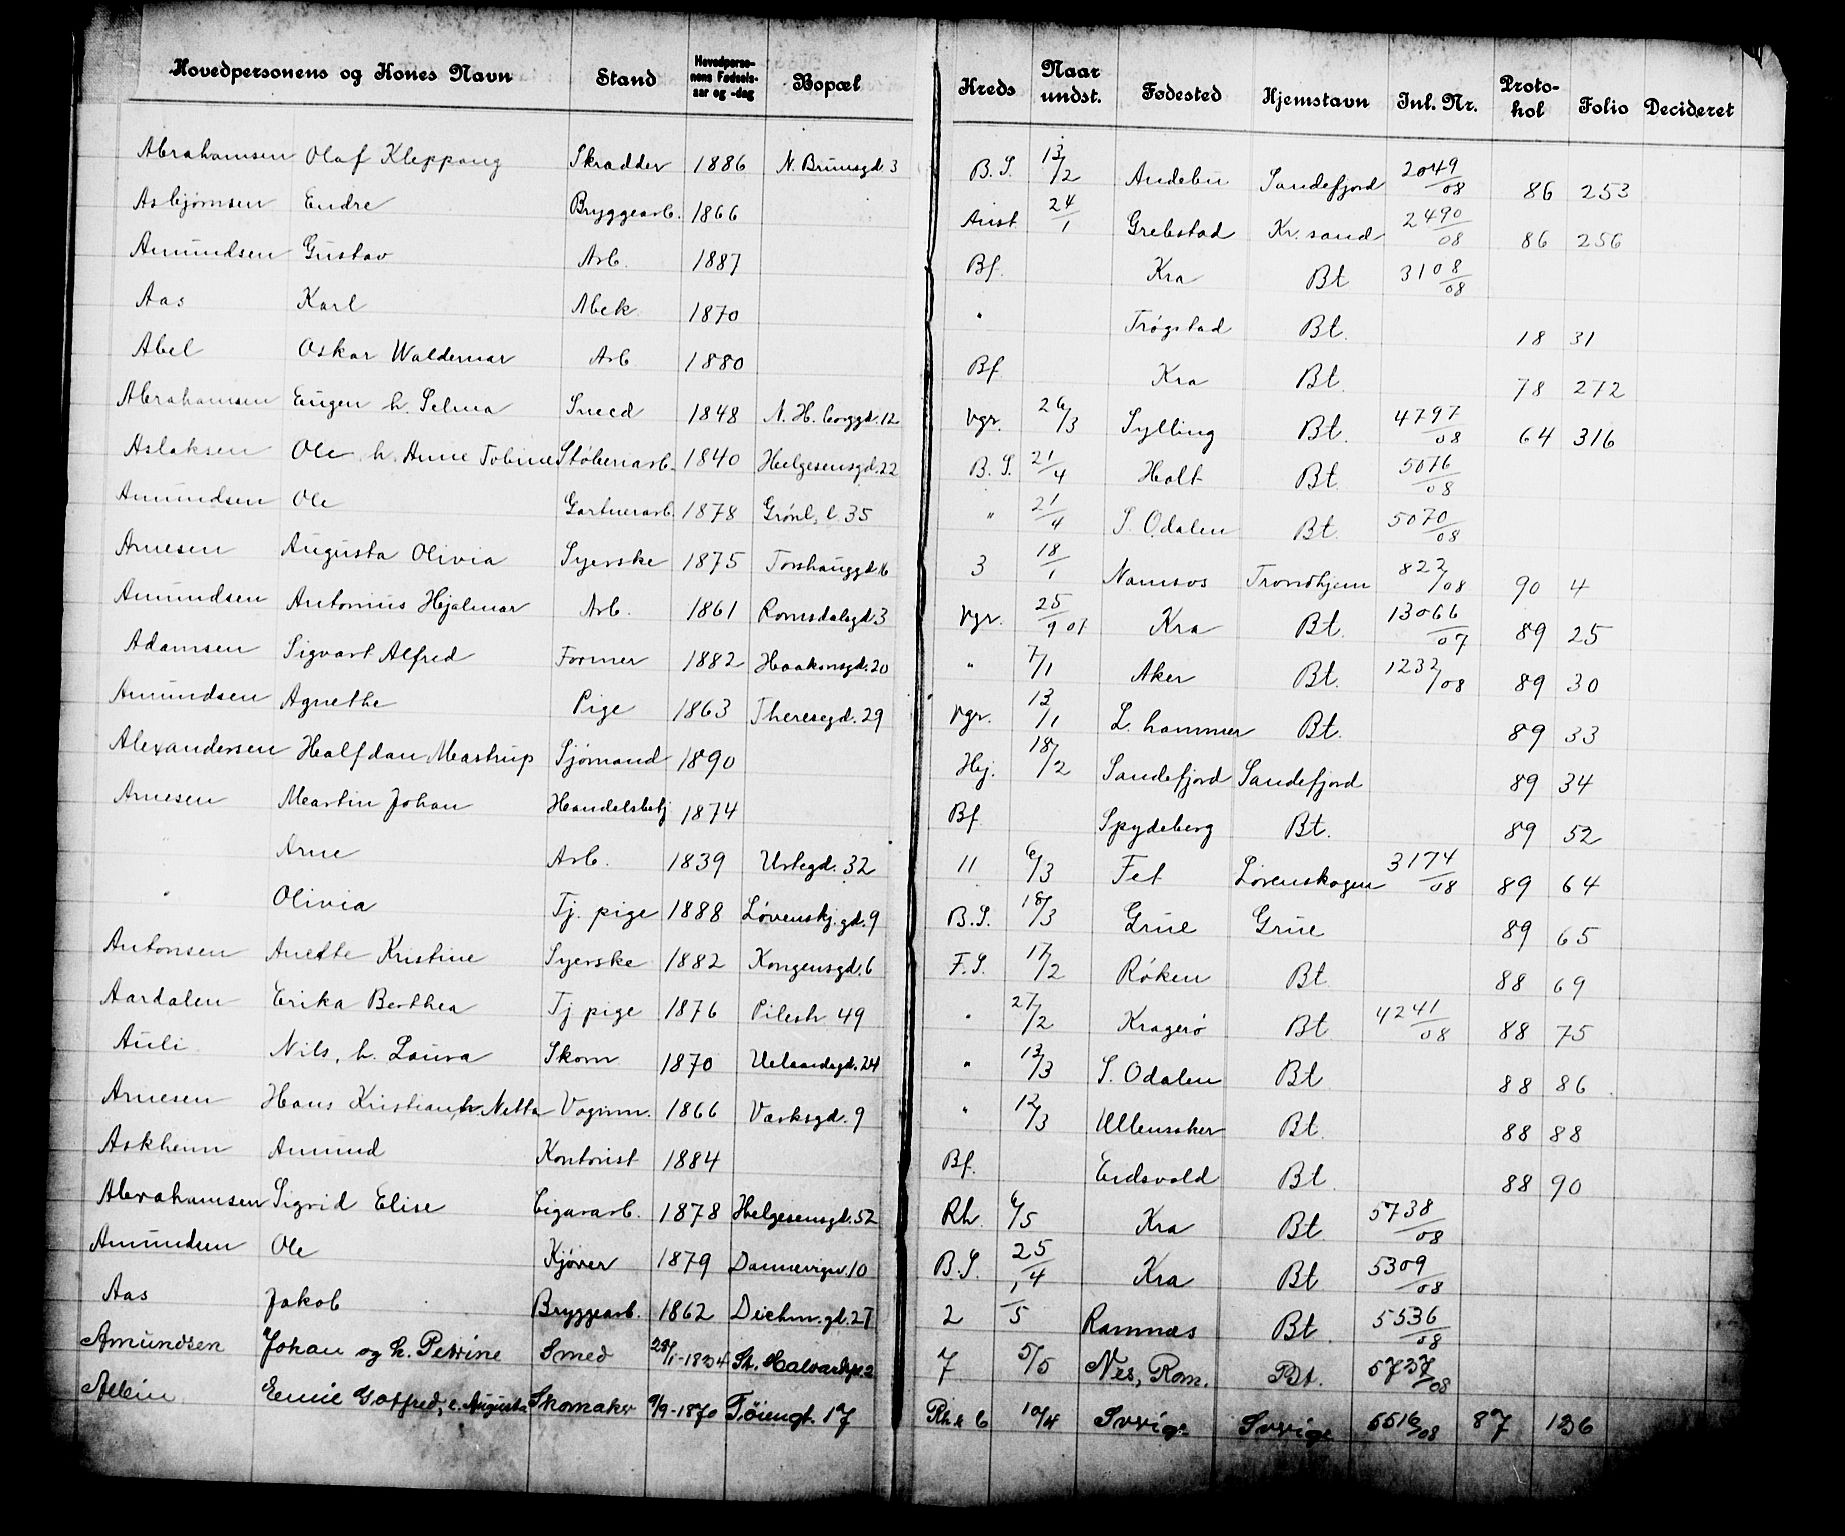 Hovedpersonens og Kones Navn Stand Hovedperso-nens Fødsels-aar og -dag Bopæl Kreds Naar undst. Fødested Hjemstavn Inl. Nr. Proto-kol Folio Decideret
Abrahamsen Olaf Kleppang Skrædder 1886 N. Brunsgd. 3 B. S. 13/2 Andebu Sandefjord 2049/08 86 253
Asbjørnsen Endre Bryggearb. 1866 Anst 24/1 Grebstad Kr. sand 2490/08 86 256
Amundsen Gustav Arb. 1887 Bf. Kra Bt 3108/08
Aas Karl Mek 1870 " Trøgstad Bt. 18 31
Abel Oskar Waldemar Arb 1880 Bf Kra Bt. 78 272
Abrahamsen Eugen h. Selma Smed 1848 N. H. borggd. 12 Vgr. 26/3 Sylling Bt. 4797/08 64 316
Aslaksen Ole h. Anne Tobine Støberiarb. 1840 Helgesensgd. 22 B. S. 21/4 Holt Bt. 5076/08
Amundsen Ole Gartnerarb. 1878 Grønl. l. 35 " 21/4 S. Odalen Bt. 5070/08
Arnesen Augusta Olivia Syerske 1875 Torshauggd. 16 3 18/1 Namsos Trondhjem 822/08 90 4
Amundsen Antonius Hjalmar Arb. 1861 Romsdalsgd. 3 Vgr. 25/9 01 Kra Bt. 13066/07 89 25
Adamsen Sigvart Alfred Former 1882 Haakonsgd. 20 " 7/1 Aker Bt. 1232/08 89 30
Amundsen Agnethe Pige 1863 Theresegd. 29 Vgr. 13/1 L. hammer Bt. 89 33
Alexandersen Halfdan Mastrup Sjømand 1890 Hej. 18/2 Sandefjord Sandefjord 89 34
Arnesen Martin Johan Handelsbetj 1874 Bf. Spydeberg Bt. 89 52
" Arne Arb. 1839 Urtegd. 32 11 6/3 Fet Lørenskogen 3174/08 89 64
" Olivia Tj. pige 1888 Løvenskj. gd. 9 B. S. 18/3 Grue Grue 89 65
Antonsen Anette Kristine Syerske 1882 Kongensgd. 6 F. S. 17/2 Røken Bt. 88 69
Aardalen Erika Berthea Tj pige 1876 Pilestr 49 " 27/2 Kragerø Bt 4241/08 88 75
Auli Nils, h. Laura Skom 1870 Uelandsgd. 24 " 13/3 S. Odalen Bt. 88 86
Arnesen Hans Kristian, h. Netta Vognm. 1866 Værksgd. 9 " 12/3 Ullensaker Bt. 88 88
Askheim Amund Kontorist 1884 Bf. Eidsvold Bt. 88 90
Abrahamsen Sigrid Elise Cigararb. 1878 Helgesensgd. 52 Rh. 6/5 Kra Bt 5738/08
Amundsen Ole Kjører 1879 Dannevigsv. 10 B. S. 25/4 Kra Bt 5309/08
Aas Jakob Bryggearb. 1862 Dichm. gd. 27 2 1/5 Ramnæs Bt. 5536/08
Amundsen Johan og h. Petrine Smed 1834 St. Halvardspl. 2 7 5/5 Nes, Rom. Bt. 5737/08
Emil Gotfred, Augusta Skomaker 9/9-1870 Tøiengt. 17 Rh & 6 10/4 Sverige Sverige 5516/08 87 136